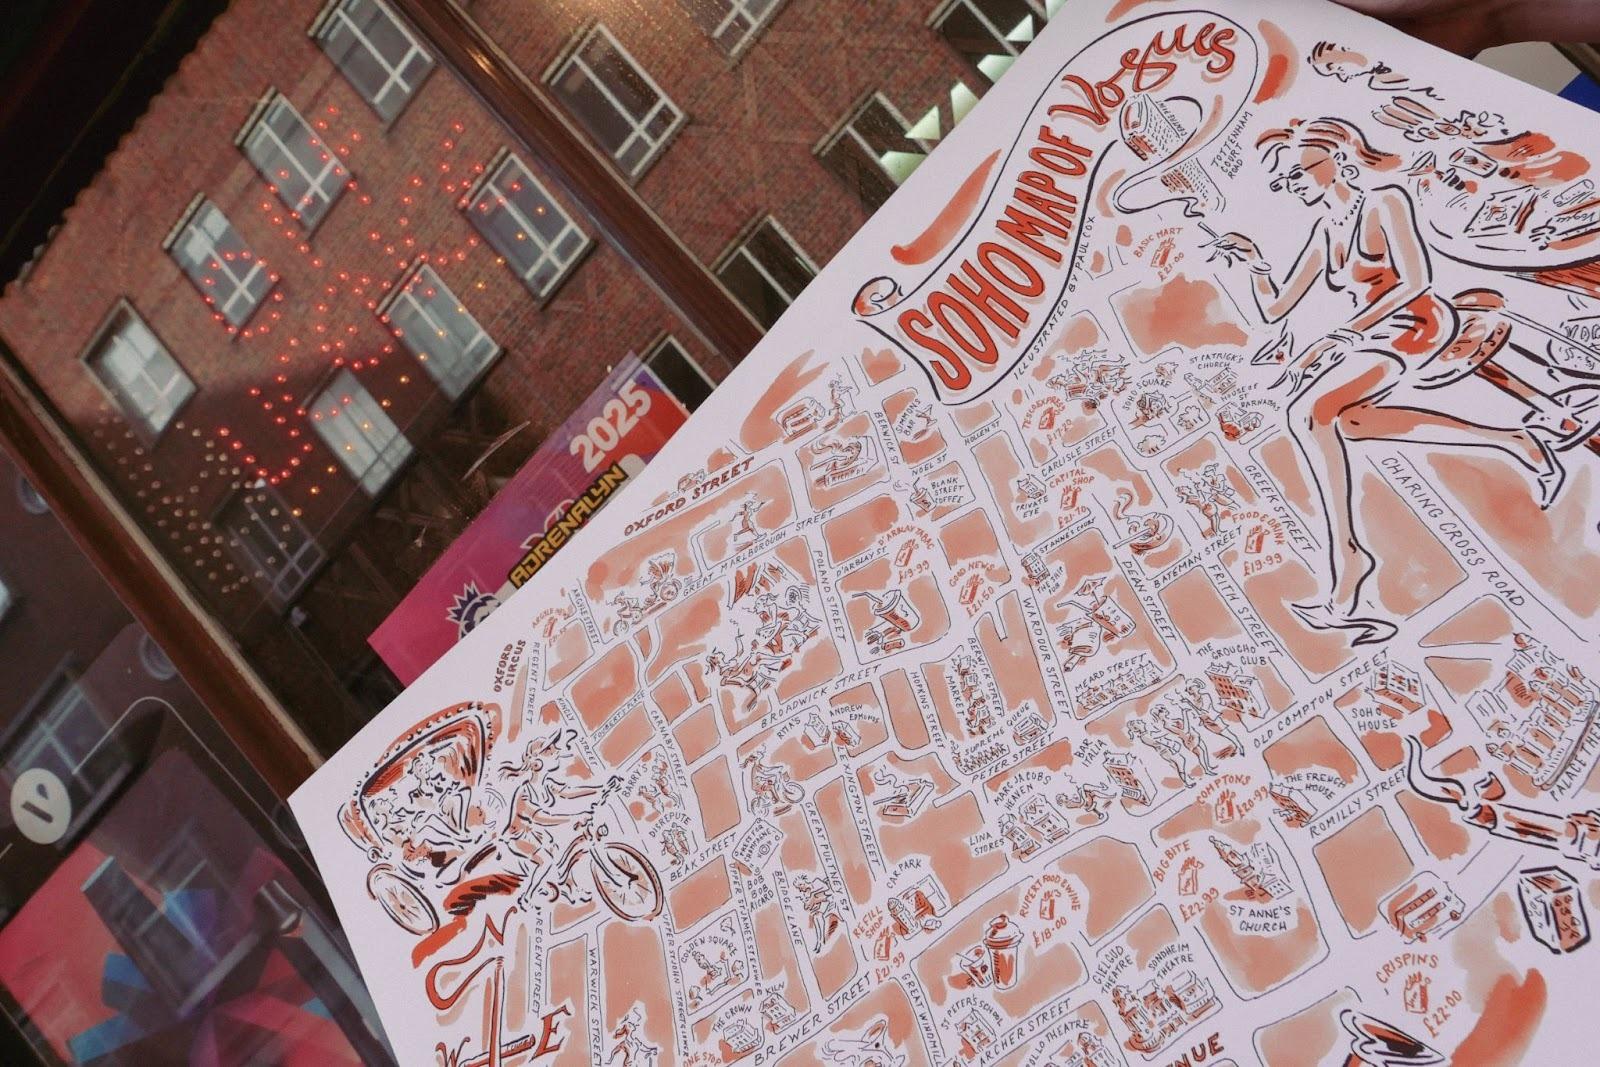 SOHO MAP OF Vogues
ILLUSTRATED BY PAUL COX
TOTTENHAM
COURT
ROAD
BASIC MART
£21.00
2025
ADRENALYN
OXFORD STREET
OXFORD
CIRCUS
ARGYLE STREET
REGENT STREET
GREAT MARLBOROUGH STREET
BERWICK ST
SIMMONS
BAR
NOEL ST
HOLLEN ST
BLANK
STREET
COFFEE
TESCO EXPRESS
£17.20
SOHO SQUARE
ST PATRICK'S
CHURCH
HOUSE OF
ST
BARNABAS
CARLISLE STREET
PRIVATE
EYE
CAPITAL
SHOP
£21.70
GREEK STREET
FOOD & DRINK
£19.99
CHARING CROSS ROAD
POLAND STREET
D'ARBLAY ST
D'ARBLAY TABAC
£19.99
GOOD NEWS
£21.50
ST ANNE'S COURT
THE SHIP
PUB
WARDOUR STREET
DEAN STREET
BATEMAN STREET
FRITH STREET
MEARD STREET
THE GROUCHO
CLUB
OLD COMPTON STREET
SOHO
HOUSE
PALACE THE
FOUBERTS PLACE
CARNABY STREET
BROADWICK STREET
HOPKINS STREET
BERWICK STREET
MARKET
SUPREME
QUEUE
PETER STREET
RITA'S
ANDREW
EDMUNDS
LEXINGTON STREET
BAR
ITALIA
MARC JACOBS
HEAVEN
LINA
STORES
COMPTON'S
£20.99
THE FRENCH
HOUSE
ROMILLY STREET
BIG BITE
£22.99
ST ANNE'S
CHURCH
CRISPIN'S
£22.00
DISREPUTE
BEAK STREET
BOB
BOB
RICARD
BRIDGE LANE
GREAT PULTNEY ST
CAR PARK
REFILL
SHOP
£21.99
RUPERT FOOD & WINE
£18.00
GIELGUD
THEATRE
SONDHEIM
THEATRE
GOLDEN SQUARE
THE CROWN
KILN
BREWER STREET
GREAT WINDMILL
ST PETER'S SCHOOL
ARCHER STREET
REGENT STREET
WARWICK STREET
ONE STOP
W
E